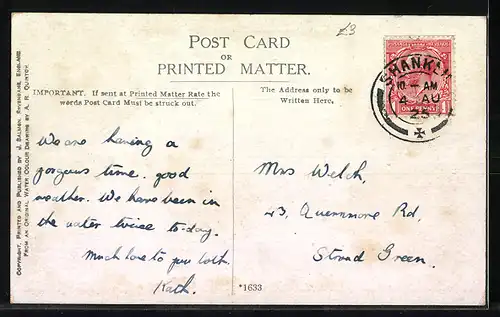 £3
POST CARD
OR
PRINTED MATTER.
IMPORTANT. If sent at Printed Matter Rate the
words Post Card Must be struck out.
The Address only to be
Written Here.
SHANKLIN
10 - AM
4 AU
23
ONE PENNY
We are having a
gorgeous time. good
weather. We have been in
the water twice to-day.
Much love to you both.
Kath.
Mrs Welch,
43, Quernmore Rd,
Stroud Green.
*1633
COPYRIGHT, PRINTED AND PUBLISHED BY J. SALMON, SEVENOAKS, ENGLAND
FROM AN ORIGINAL WATER COLOUR DRAWING BY A. R. QUINTON.